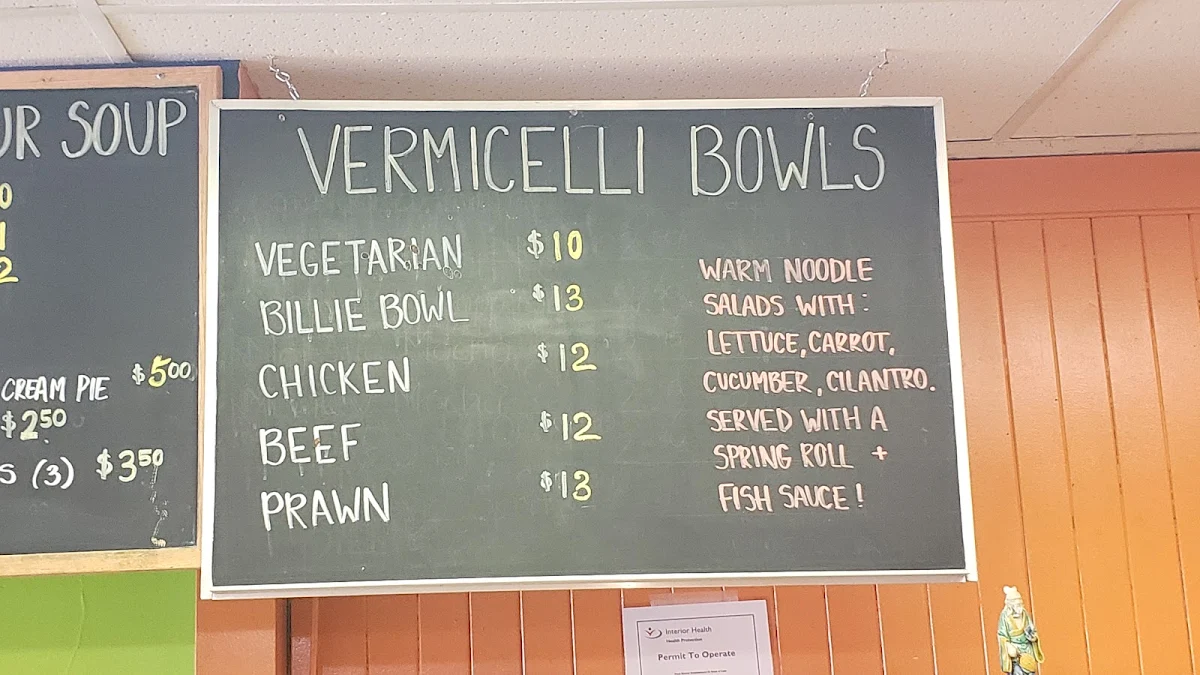 UR SOUP
0
1
2
CREAM PIE $5.00
$2.50
S (3) $3.50
VERMICELLI BOWLS
VEGETARIAN $10
BILLIE BOWL $13
CHICKEN $12
BEEF $12
PRAWN $13
WARM NOODLE
SALADS WITH:
LETTUCE, CARROT,
CUCUMBER, CILANTRO.
SERVED WITH A
SPRING ROLL +
FISH SAUCE!
Interior Health
Health Protection
Permit To Operate